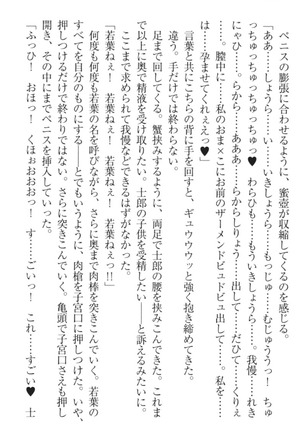 ペニスの膨張に合わせるように、蜜壺が収縮してくるのを感じる。
「ああ……しょうら……い、いきしょうら……もっ……むじゅううっ！　ちゅ
っちゅっちゅっちゅっちゅっ♥　わらひも……もういきしょうら……。我慢……れき
にゃひ……。らから……あああ……らからしりょう……出して……だひて……くりぇ
……。膣中に……。私のおま×こにお前のザーメンドビュドビュ出して……。私を……
はっ……孕ませてくれぇえっ♥」
言葉と共にこちらの背に手を回すと、ギュウウウッと強く抱き締めてきた。いや、
違う。手だけでは終わらない。
足まで回してくる。蟹挟みするように、両足で士郎の腰を挟みこんできた。これま
で以上に奥で精液を受け取りたい。士郎の子供を受精したい――と訴えるみたいに。
ここまで求められて我慢などできるはずがなかった。
「若葉ねぇ！　若葉ねぇ！　若葉ねぇっ!!」
何度も何度も若葉の名を呼びながら、さらに奥まで肉棒を突きこんでいく。若葉の
すべてを自分のものにする――とでもいうように、肉槍を子宮口に押しつけた。いや、
押しつけるだけで終わりではない。さらに突きこんでいく。亀頭で子宮口さえも押し
開き、その中にまでペニスを挿入していった。
「ふっひ！　おほっ！　くほぉおおおっ！　す……ごいっ！　これ……すごい♥　士